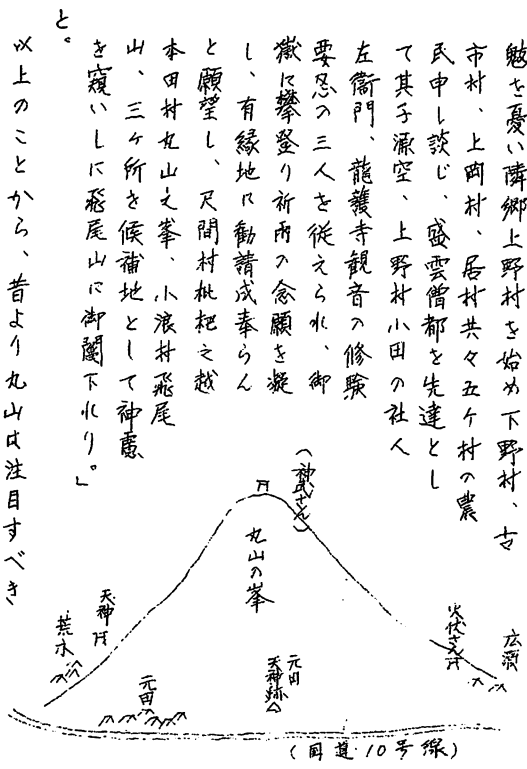 勉を憂い隣郷上野村を始め下野村、古
市村、上岡村、居村共々五ケ村の農
民申し談じ、盛雲僧都を先達とし
て其子源空、上野村小田の社人
左衞門、龍護寺観音の修験
要忍の三人を従えられ、御
嶽に攀登り祈雨の念願を凝
し、有縁地に勧請成奉らん
と願望し、尺間村枇杷之越
本田村丸山之峯、小浪村飛尾
山、三ケ所を候補地として神慮
を窺いしに飛尾山に御䦰下れり。」
と。
以上のことから、昔より丸山は注目すべき
(神武さん)
丸山の峯
天神
荒木
元田
元田
天神跡
火伏さん
広瀬
(国道10号線)